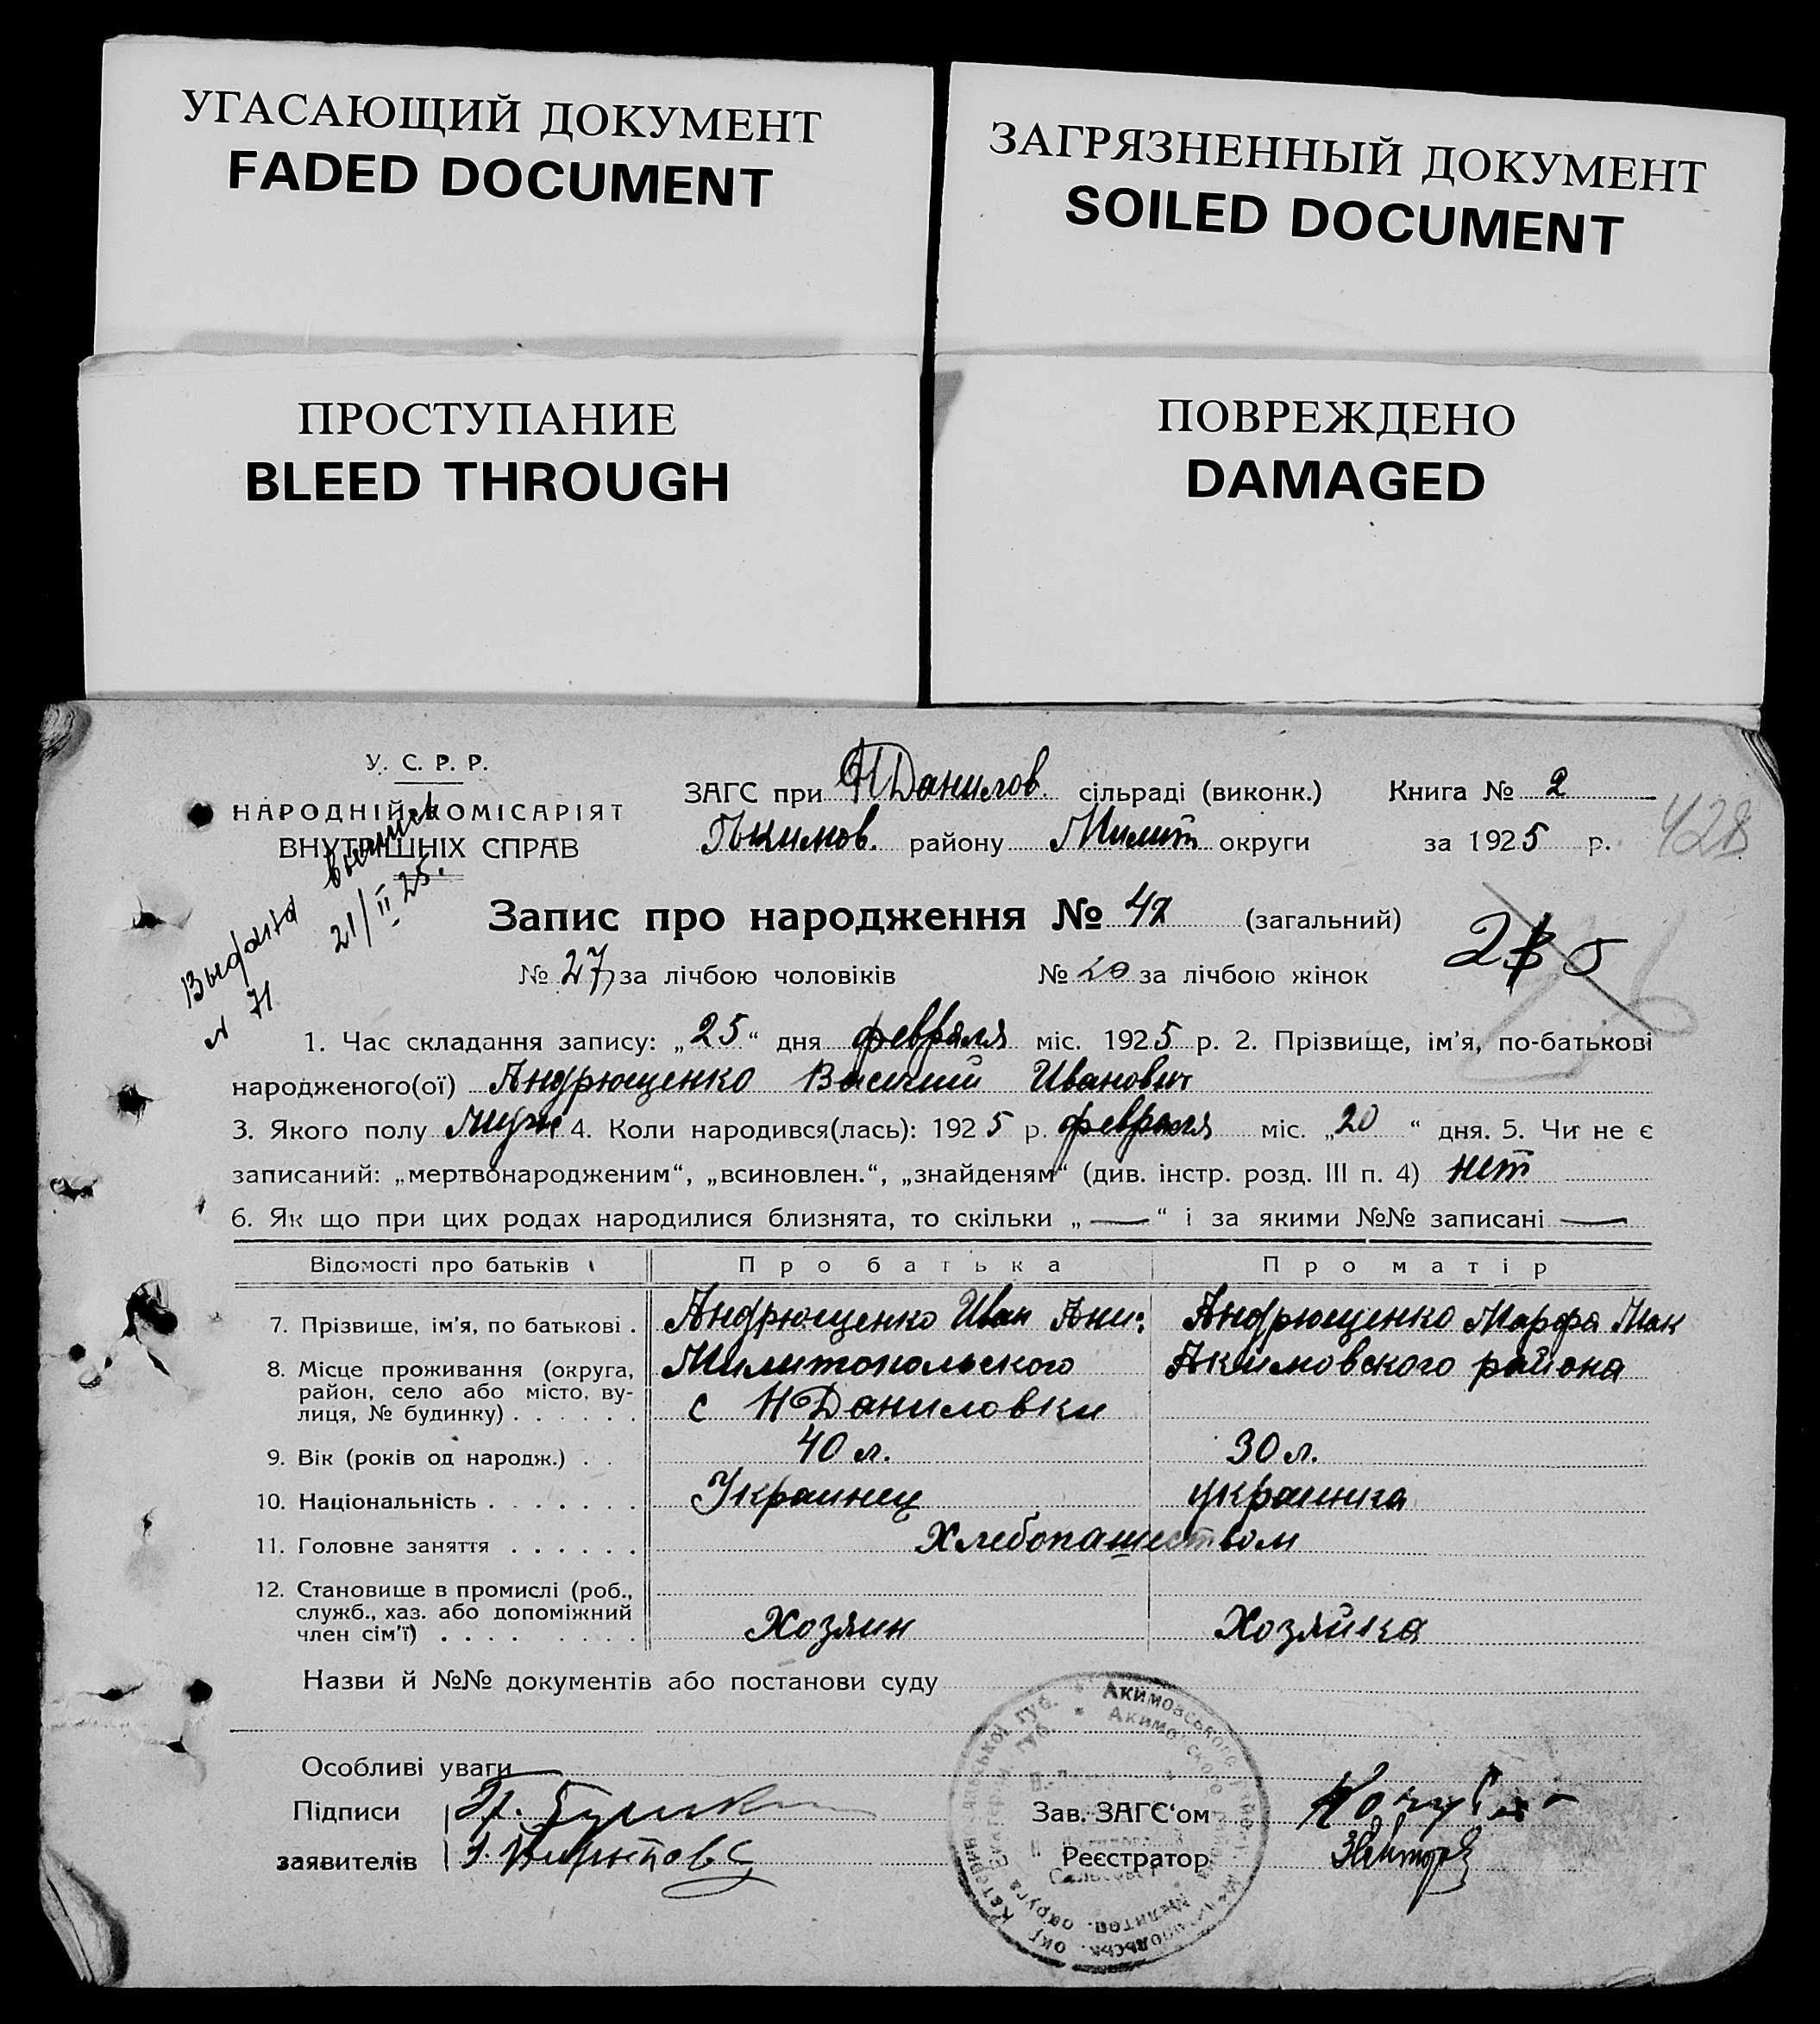 УГАСАЮЩИЙ ДОКУМЕНТ
FADED DOCUMENT
ЗАГРЯЗНЕННЫЙ ДОКУМЕНТ
SOILED DOCUMENT
ПРОСТУПАНИЕ
BLEED THROUGH
ПОВРЕЖДЕНО
DAMAGED
У. С. Р. Р.
НАРОДНІЙ КОМІСАРІЯТ
ВНУТРІШНІХ СПРАВ
ЗАГС при НДанилов. сільраді (виконк.) Книга № 2
Акимов. району Мелит округи за 1925 р.
428
Выдана выпись
21/II 25.
№ 71
Запис про народження № 47 (загальний)
№ 27 за лічбою чоловіків № 20 за лічбою жінок
1. Час складання запису: „25“ дня февраля міс. 1925 р. 2. Прізвище, ім'я, по-батькові
народженого(ої) Андрющенко Василий Иванович
3. Якого полу Муж 4. Коли народився(лась): 1925 р. февраля міс. „20“ дня. 5. Чи не є
записаний: „мертвонародженим“, „всиновлен.“, „знайденям“ (див. інстр. розд. III п. 4) нет
6. Як що при цих родах народилися близнята, то скільки „—“ і за якими №№ записані —
Відомості про батьків Про батька Про матір
7. Прізвище, ім'я, по батькові . Андрющенко Иван Андрющенко Марфа Мак
8. Місце проживання (округа, Милитопольского Акимовского района
район, село або місто, ву-
лиця, № будинку) . . . . . . с НДаниловки
9. Вік (років од народж.) . . 40 л. 30 л.
10. Національність . . . . . . . Украинец украинка
11. Головне заняття . . . . . . Хлебопашеством
12. Становище в промислі (роб.,
служб., хаз. або допоміжний
член сім'ї) . . . . . . . . Хозяин Хозяйка
Назви й №№ документів або постанови суду
Особливі уваги
Підписи Зав. ЗАГС'ом
заявителів Реєстратор